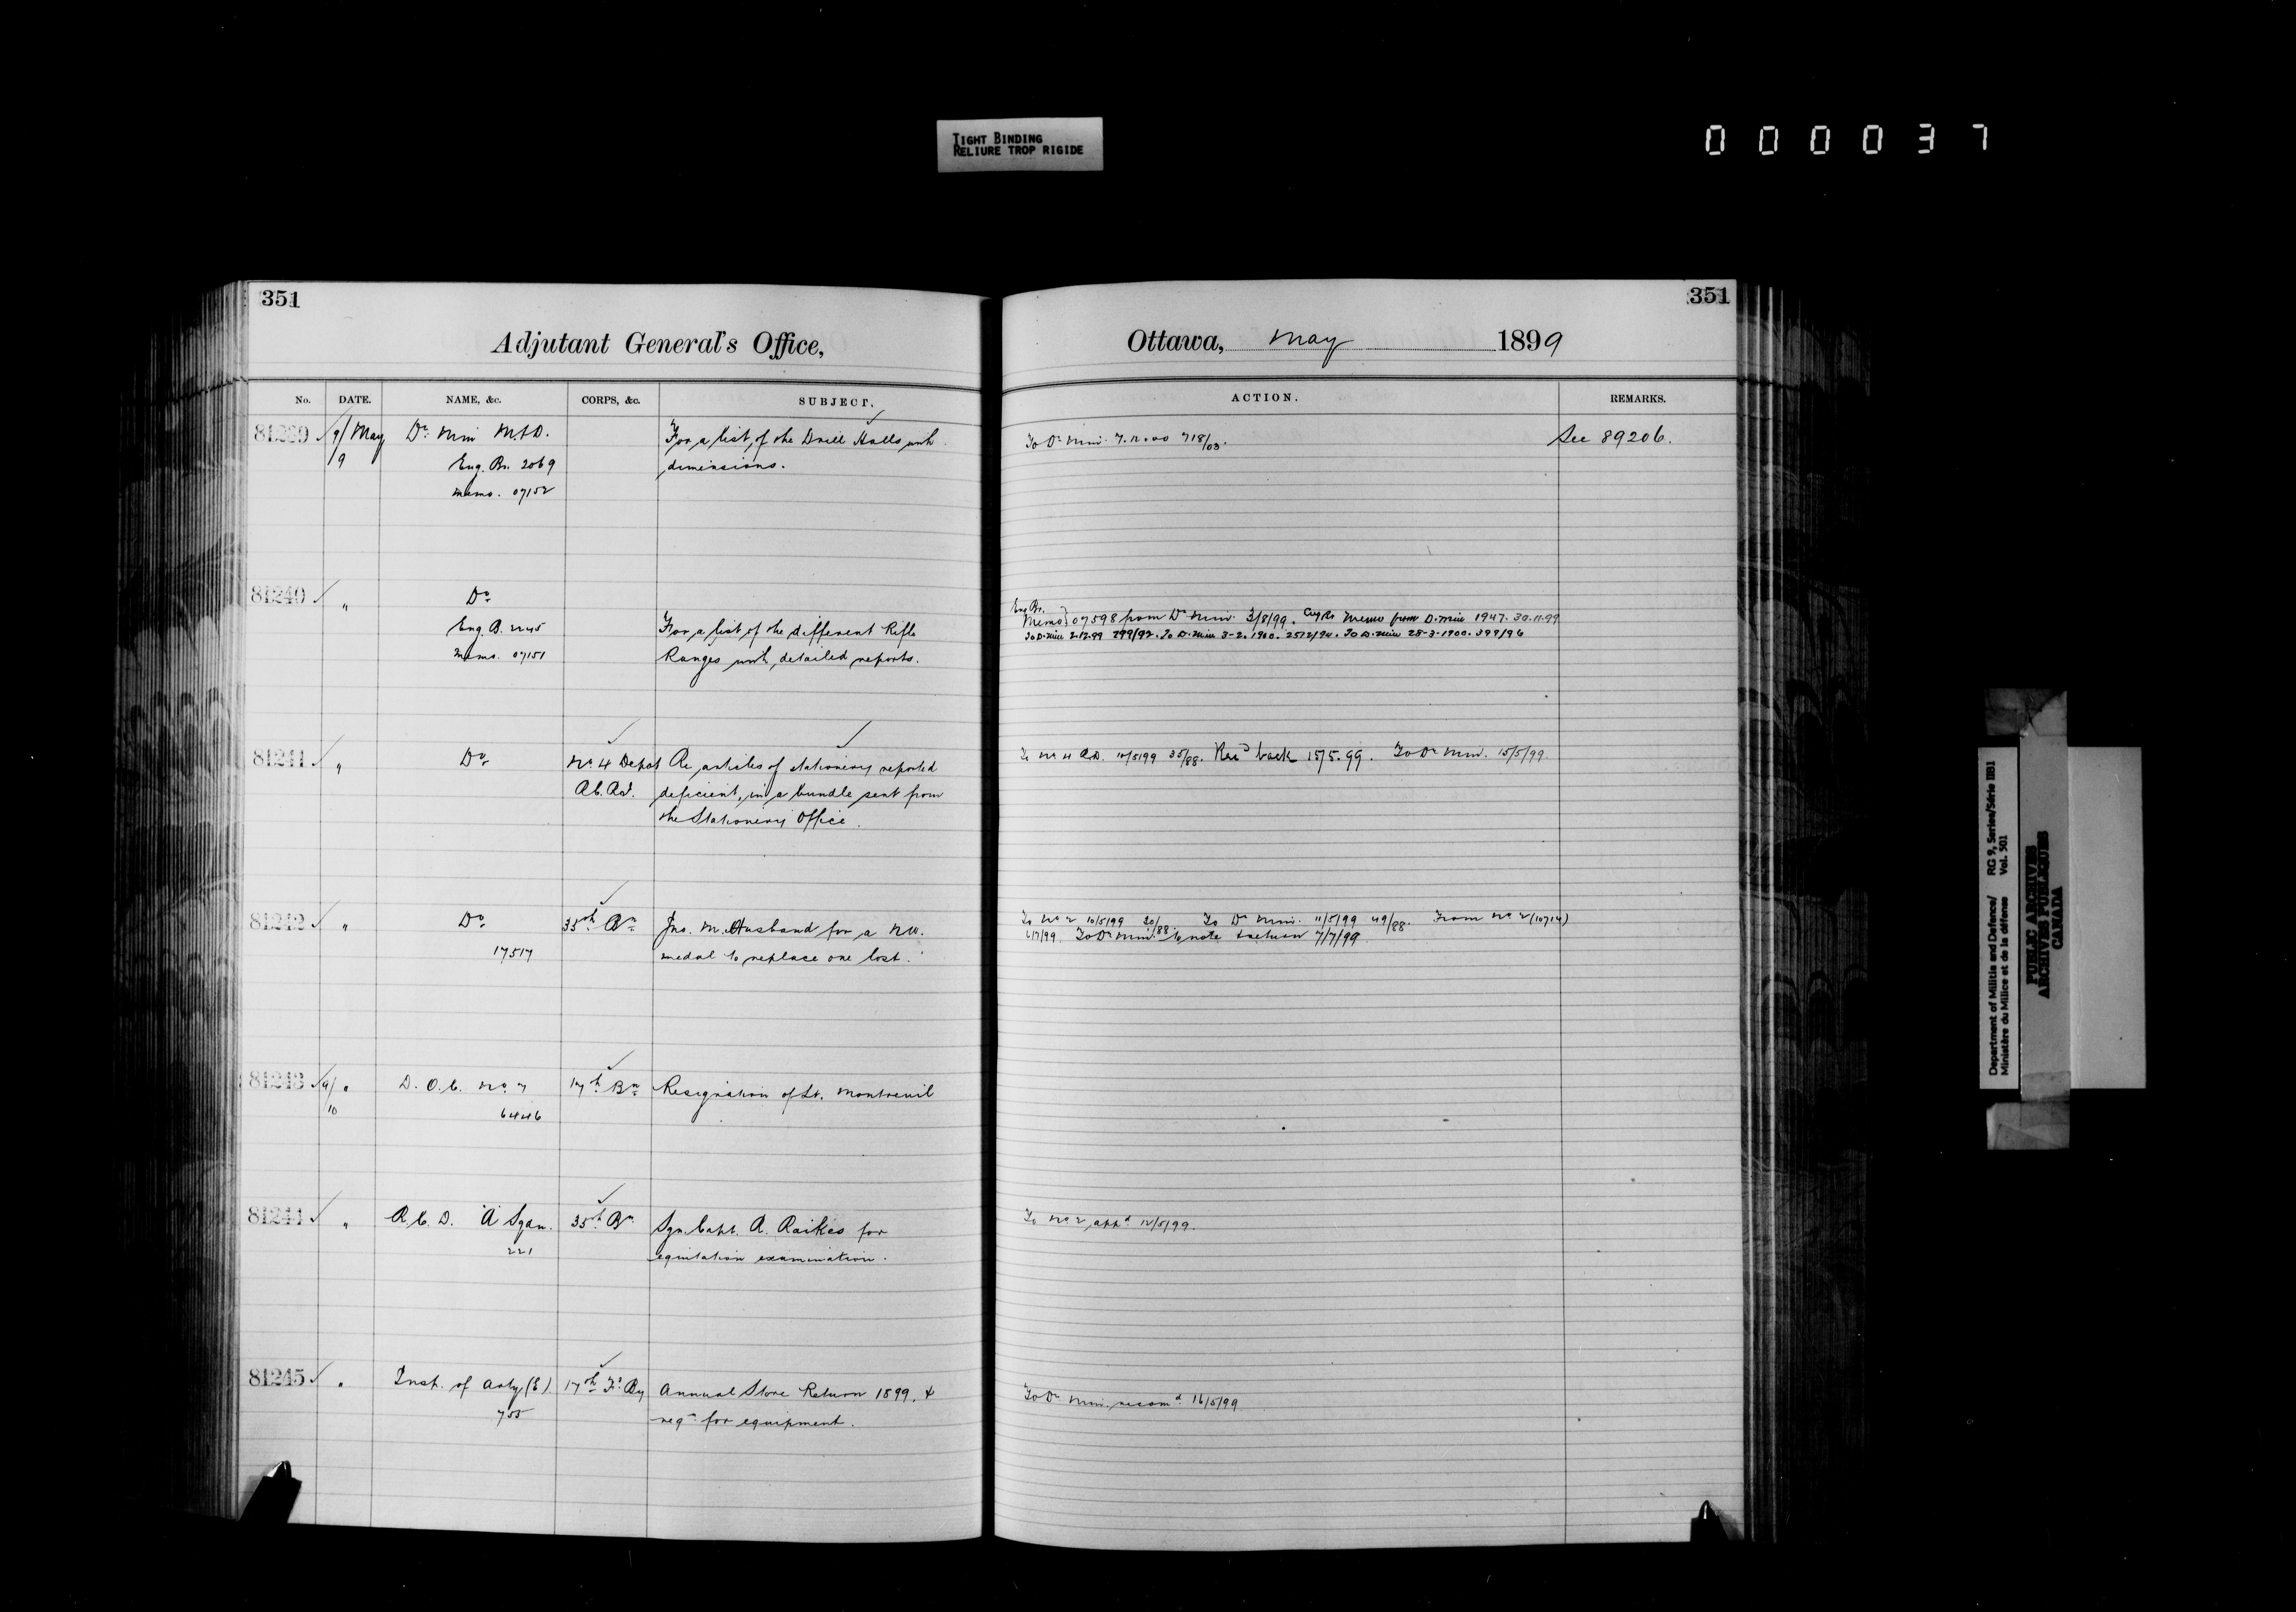 TIGHT BINDING
RELIURE TROP RIGIDE
000037
351
Adjutant General's Office,
No. DATE. NAME, &c. CORPS, &c. SUBJECT.
81239 9/May Dr Min M&D. For a list of the Drill Halls with
9 Eng. Br. 2069 dimensions.
memo. 07152
81240 " Do
Eng. B. 2245 For a list of the different Rifle
memo. 07151 Ranges with detailed reports.
81241 " Do No 4 Depot Re articles of stationery reported
deficient, in a bundle sent from
the Stationery Office.
81242 " Do 35th Bn Jno. M. Husband for a N.W.
17517 medal to replace one lost.
81243 9/ " D. O. C. No 7 17th Bn Resignation of Lt. Montreuil
10 6446
81244 " R. C. D. "A" Sqdn. 35th Bn Capt. A. Raikes for
221 equitation examination.
81245 " Insp. of Arty (E) 17th Fd By Annual Store Return 1899. &
755 reqn for equipment.
351
Ottawa, May 1899
ACTION. REMARKS.
To Dr Min. 718/03. See 89206.
Eng Br.
Memo 07598 from Dr Min. 3/8/99. Memo from D. Min 1947. 30.11.99
To D. Min 2-12-99 299/92. To D. Min 3-2.1900. 2512/94. To D. Min 28-3-1900. 399/96
To No 4 R.D. 10/5/99 35/88. Recd back 15/5.99. To Dr Min. 15/5/99
To No 2 10/5/99 20/88. To Dr Min. 11/5/99 49/88. From No 2 (10714)
6/7/99. To Dr Min. to note & return 7/7/99
To No 2 appd 12/5/99.
To Dr Min. recomd 16/5/99
Department of Militia and Defence/ RG 9, Series/Série IIB1
Ministère du Milice et de la défense Vol. 501
PUBLIC ARCHIVES
ARCHIVES PUBLIQUES
CANADA